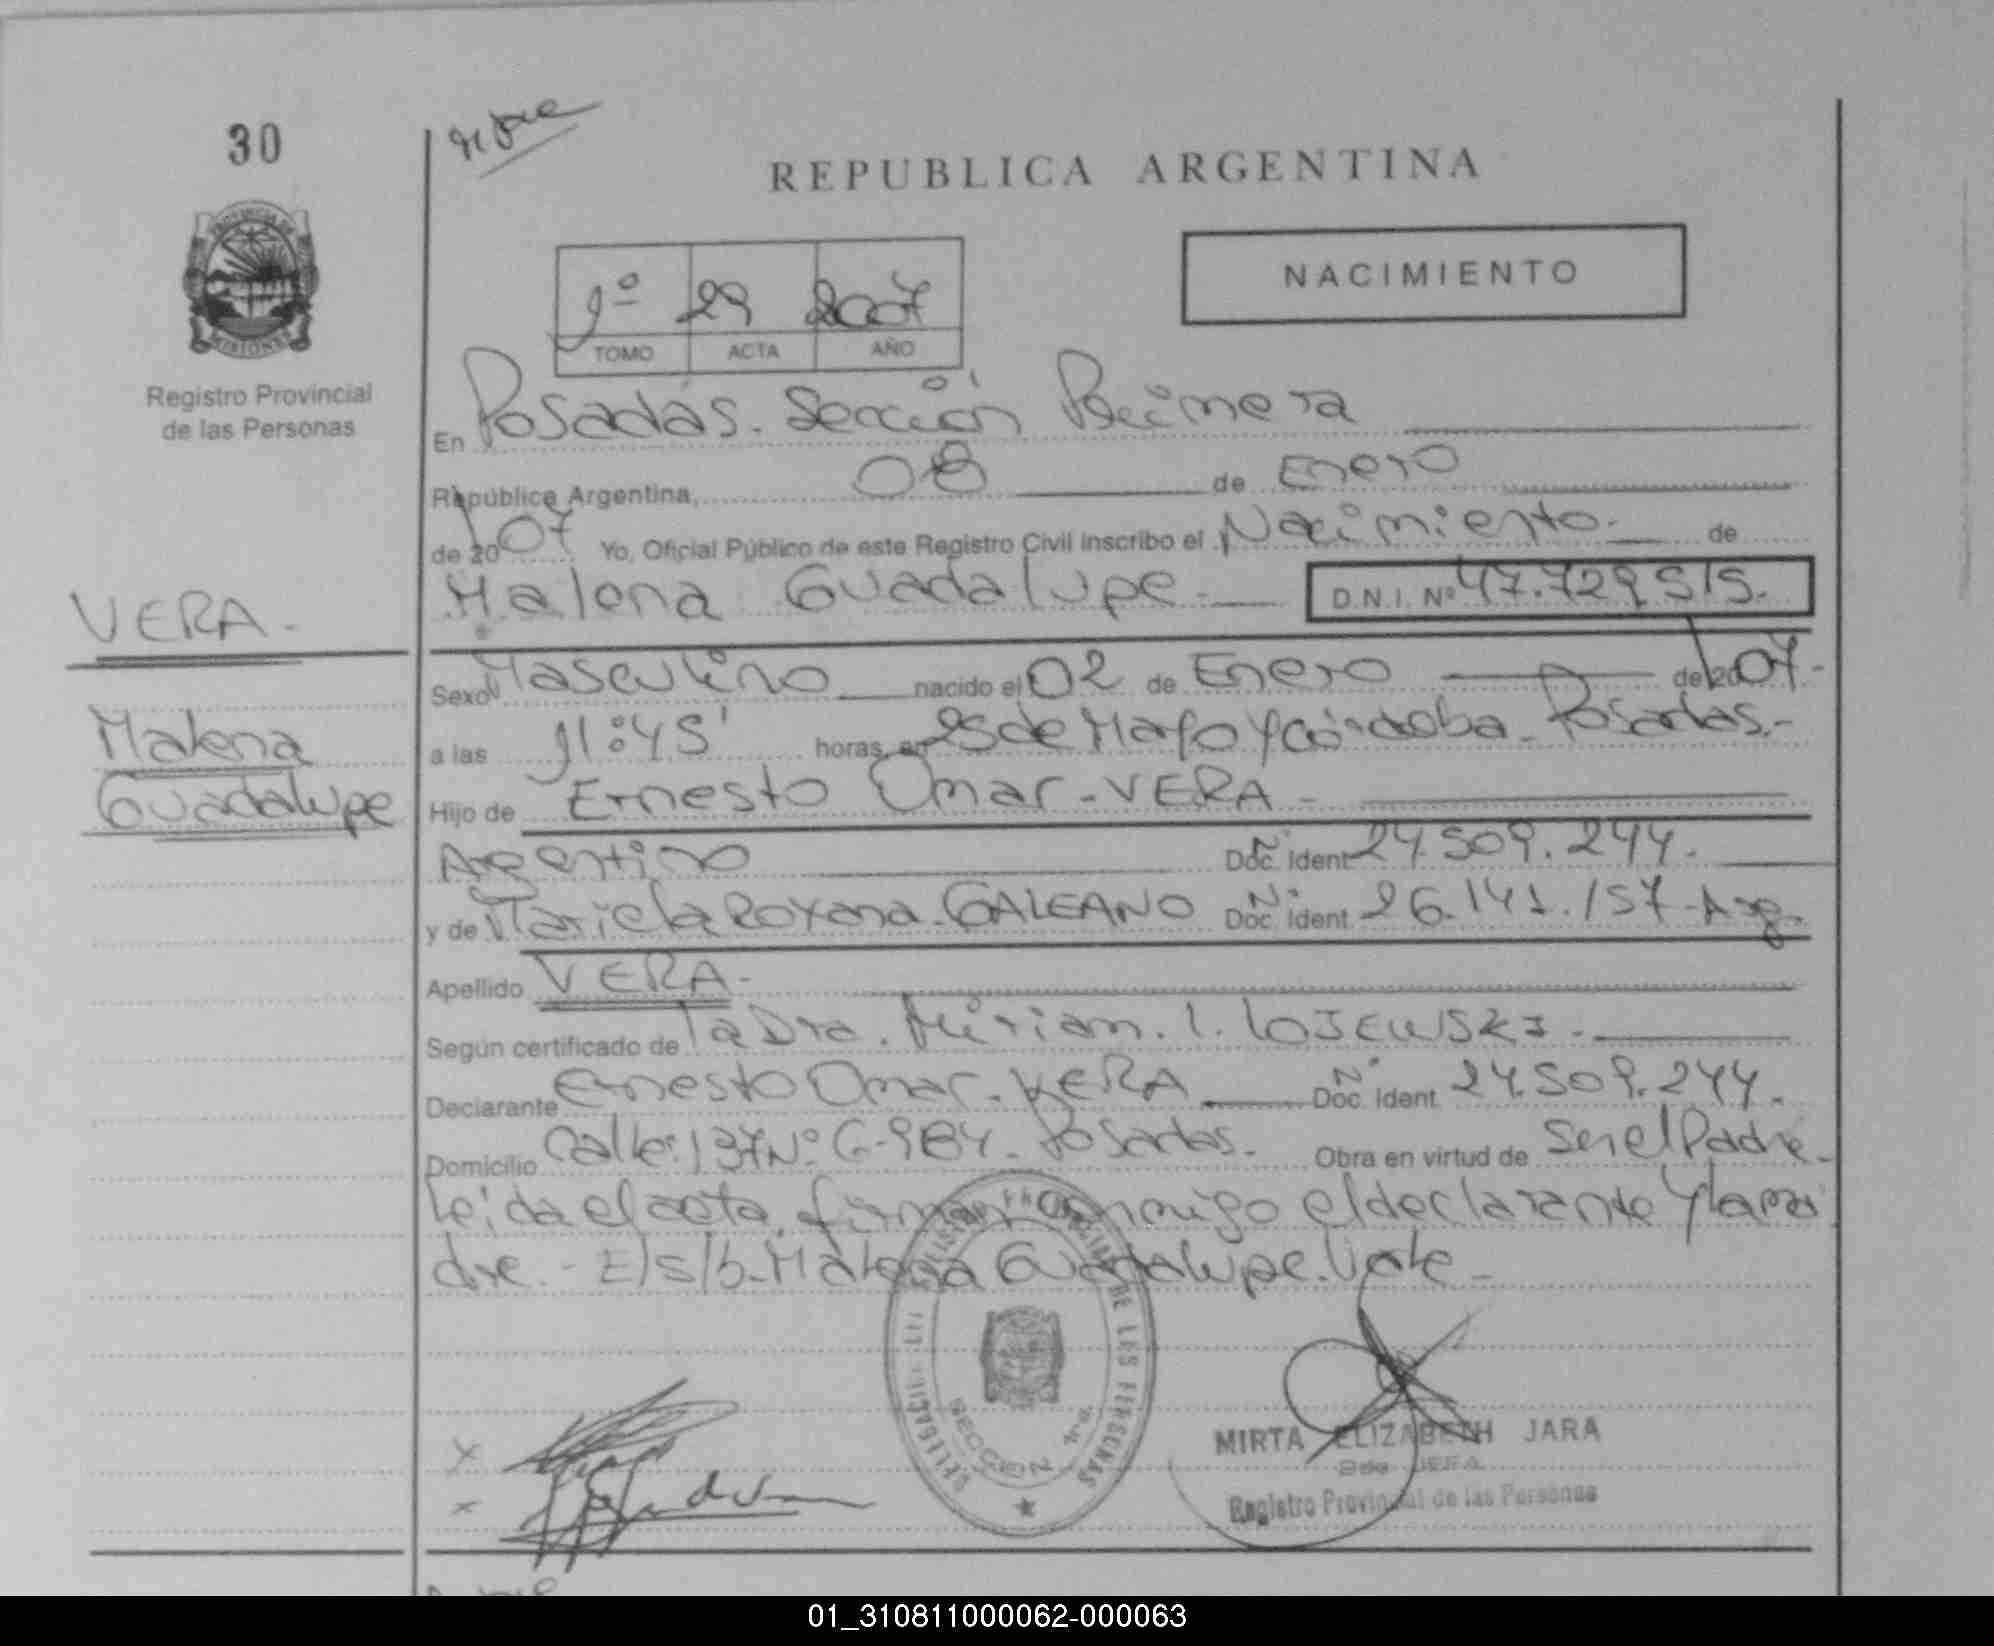 30
REPUBLICA ARGENTINA
PROVINCIA DE
MISIONES
Registro Provincial
de las Personas
1º 29 2007
TOMO ACTA AÑO
NACIMIENTO
En Posadas. Sección Primera
República Argentina, 08 de Enero
de 2007 Yo, Oficial Público de este Registro Civil inscribo el Nacimiento. de
Malena Guadalupe. D.N.I. Nº 47.729.515.
VERA.
Malena
Guadalupe
Sexo Masculino nacido el 02 de Enero de 2007.
a las 11:45' horas, en 25 de Mayo y Córdoba. Posadas.-
Hijo de Ernesto Omar. VERA.
Argentino Nº Doc. Ident 24.509.244.
y de Mariela Roxana. GALEANO Nº Doc. Ident 26.141.157. Arg.
Apellido VERA.
Según certificado de la Dra. Miriam. L. LOJEWSKI.
Declarante Ernesto Omar. VERA Nº Doc. Ident 24.509.244.
Domicilio Calle: 137 Nº 6.984. Posadas. Obra en virtud de Ser el Padre.
Leida el acta, firman conmigo el declarante y la ma
dre.- E/s/b. Malena Guadalupe. Vale.
SECCION 1ra.
MIRTA ELIZABETH JARA
2da JEFA
Registro Provincial de las Personas
01_310811000062-000063